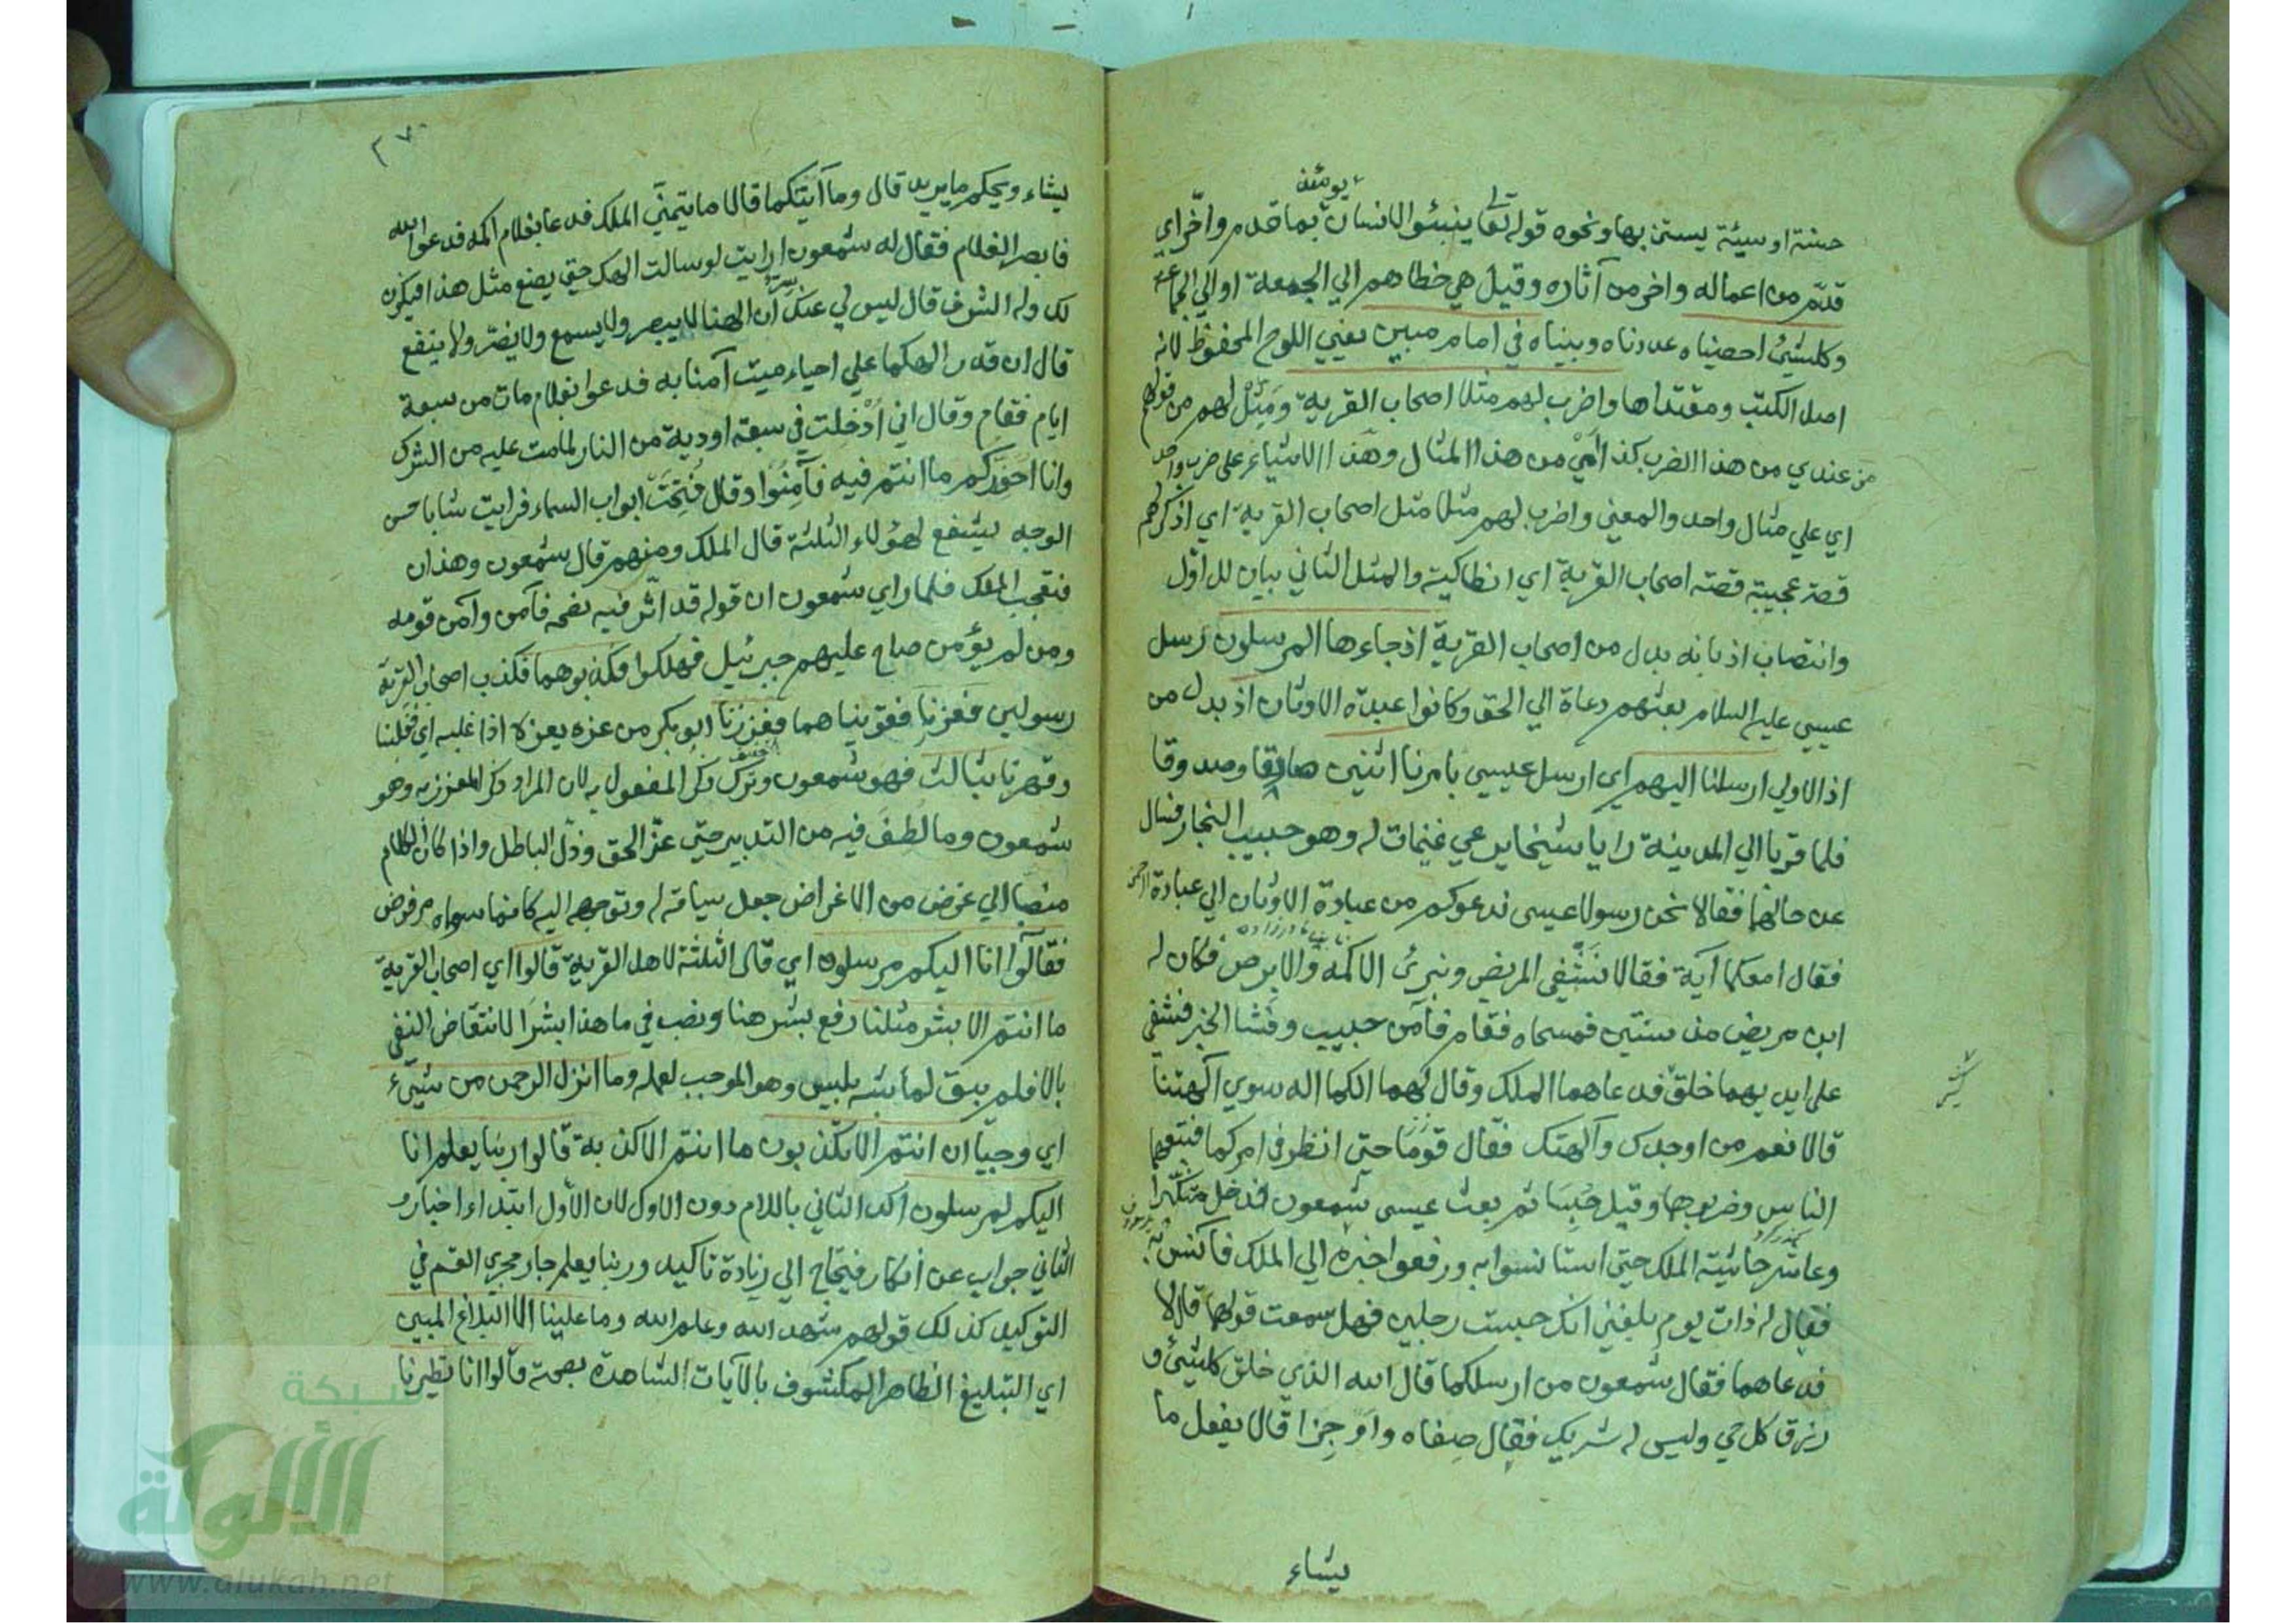 يومئذ
حسنة او سيئة يستن بها ونحوه قوله تعا ينبئوا الانسان بما قدم واخّر اي
قدّم من اعماله واخر من آثاره وقيل هي خطاهم الي الجمعة او الي الجماعة
وكلشيْ احصيناه عددناه وبيناه في امام مبين يعني اللوح المحفوظ لانه
اصل الكتب ومقتداها واضرب لهم مثلا اصحاب القرية ومَثِّلْ لهم من قولهم
من عندي من هذا الضرب كذا اي من هذا المثال وهذا الاشياء علي ضرب واحد
اي علي مثال واحد والمعني واضرب لهم مثلا مثل اصحاب القرية اي اذكر لهم
قصة عجيبة قصة اصحاب القرية اي انطاكية والمثل الثاني بيان للاوّل
وانتصاب اذ بانه بدل من اصحاب القرية اذ جاءها المرسلون رسل
عيسي عليه السلام بعثهم دعاة الي الحق وكانوا عبدة الاوثان اذ بدل من
اذ الاولي ارسلنا اليهم اي ارسل عيسي بامرنا اثنين صادقا وصدوقا
فلما قربا الي المدينة رايا شيخا يرعي غنيمات له وهو حبيب النجار فسال
عن حالهما فقالا نحن رسولا عيسي ندعوكم من عبادة الاوثان الي عبادة الرحمن
فقال امعكما آية فقالا نَشْفي المريض ونبرئ الاكمه والابرص فكان له
ابن مريض من سنتين فمسحاه فقام فآمن حبيب وفشا الخبر فشفي
علي ايديهما خلق فدعاهما الملك وقال لهما الكما اله سوي آلهتنا
قالا نعم من اوجدك وآلهتك فقال قوما حتي انظر في امركما فتبعهما
الناس وضربوهما وقيل حُبِسَا ثم بعث عيسي شمعون فدخل متنكرا
وعاشر حاشية الملك حتي استانسوا به ورفعوا خبره الي الملك فانس به
فقال له ذات يوم بلغني انك حبست رجلين فهل سمعت قولهما قال لا
فدعاهما فقال شمعون من ارسلكما قال الله الذي خلق كلشيْ و
رزق كل حي وليس له شريك فقال صفاه واوجزا قالا يفعل ما
يشاء
٢٧٠
يشاء ويحكم ما يريد قال وما آيتكما قالا ما يتمنّي الملك فدعا بغلام اكمه فدعوا الله
فابصر الغلام فقال له شمعون ارايت لو سالت الهك حتي يصنع مثل هذا فيكون
لك وله الشرف قال ليس لي عنك سر ان الهنا لا يبصر ولا يسمع ولا يضرّ ولا ينفع
قال ان قدر الهكما علي احياء ميت آمنا به فدعوا بغلام مات من سبعة
ايام فقام وقال اني اُدْخِلت في سبعة اودية من النار لما مت عليه من الشرك
وانا احذركم ما انتم فيه فآمِنُوا وقال فُتِحَتْ ابواب السماء فرايت شابا حسن
الوجه يشفع لهؤلاء الثلثة قال الملك ومنهم قال شمعون وهذان
فتعجب الملك فلما راي شمعون ان قوله قد اثّر فيه نصحه فآمن وآمن قومه
ومن لم يؤمن صاح عليهم جبرئيل فهلكوا فكذبوهما فكذب اصحاب القرية
رسولين فعززنا فقوّيناهما فعززنا ابو بكر من عزه يعزه اذا غلبه اي فغلبنا
وقهرنا بثالث فهو شمعون وترك ذكر المفعول به لان المراد ذكر المعزز به وهو
شمعون وما لطف فيه من التدبير حتي عزّ الحق وذلّ الباطل واذا كان الكلام
منصبا الي غرض من الاغراض جعل سياقه له وتوجهه اليه كانما سواه مرفوض
فقالوا انا اليكم مرسلون اي قال الثلثة لاهل القرية قالوا اي اصحاب القرية
ما انتم الا بشر مثلنا رفع بشر هنا ونصب في ما هذا بشرا لانتقاض النفي
بالا فلم يبق لما شبه بليس وهو الموجب لعمله وما انزل الرحمن من شيء
اي وحيا ان انتم الا تكذبون ما انتم الا كذبة قالوا ربنا يعلم انا
اليكم لمرسلون اكد الثاني باللام دون الاول لان الأول ابتداء اخبار و
الثاني جواب عن انكار فيحتاج الي زيادة تاكيد وربنا يعلم جار مجري القسم في
التوكيد كذلك قولهم شهد الله وعلم الله وما علينا الا البلاغ المبين
اي التبليغ الظاهر المكشوف بالآيات الشاهدة بصحته قالوا انا تطيرنا
شبكة
الألوكة
www.alukah.net